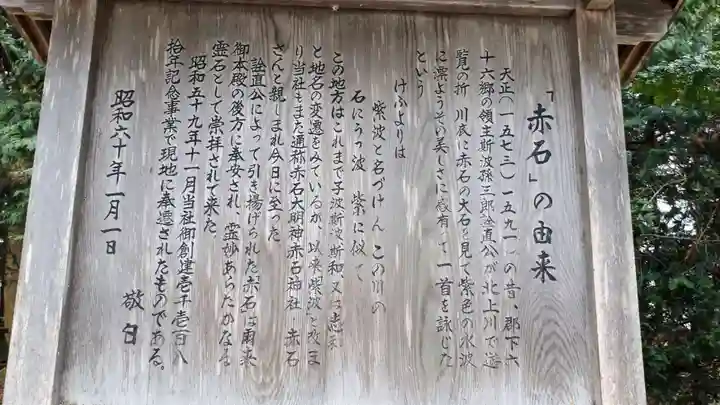 「赤石」の由来
天正(一五七三〜一五九一)の昔、郡下六
十六郷の領主斯波孫三郎詮直公が北上川で遊
覧の折 川底に赤石の大石を見て紫色の水波
に漂ようその美しさに感有って一首を詠じた
という
けふよりは
紫波と名づけん この川の
石にうつ波 紫に似て
この地方はこれまで子波斯波斯和又は志和
と地名の変遷をみているが、以来紫波と改ま
り当社もまた通称赤石大明神赤石神社・赤石
さんと親しまれ今日に至った
詮直公によって引き揚げられた赤石は爾来
御本殿の後方に奉安され、霊妙あらたかなる
霊石として崇拝されて来た
昭和五十九年十一月当社御創建壱千壱百八
拾年記念事業で現地に奉遷されたものである。
昭和六十年一月一日
敬白